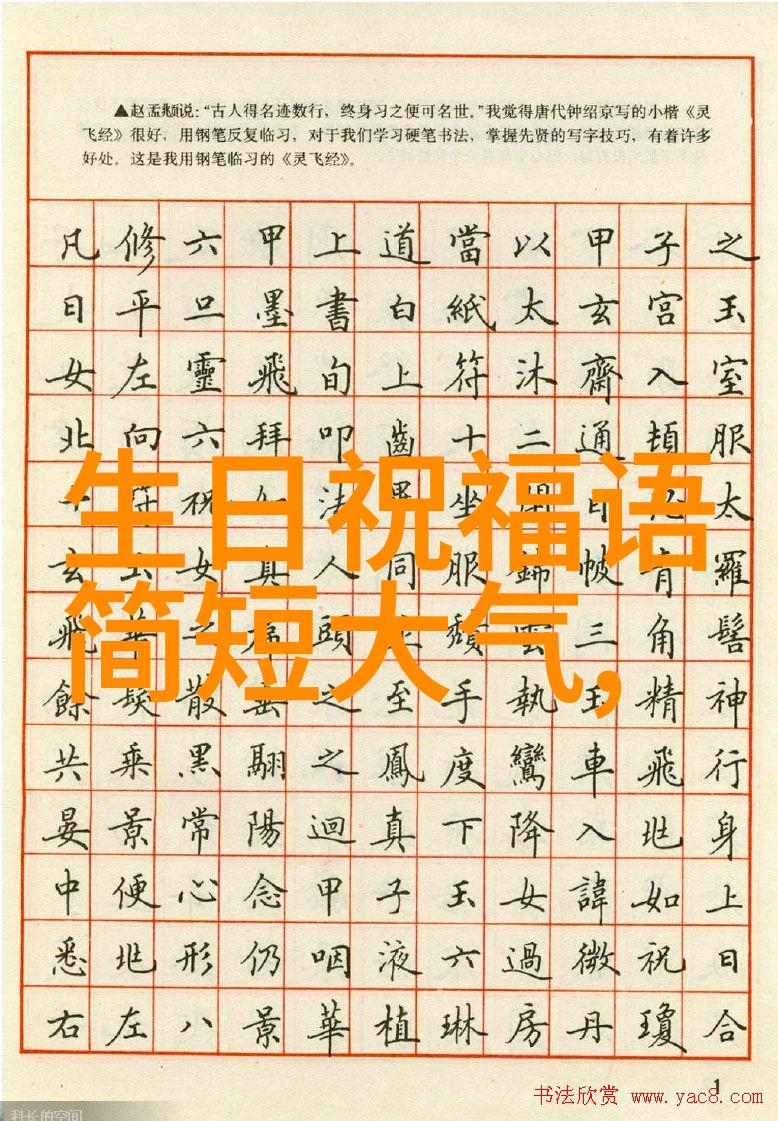 ▲赵孟頫说：“古人得名迹数行，终身习之便可名世。”我觉得唐代钟绍京写的小楷《灵
飞经》很好，用钢笔反复临习，对于我们学习硬笔书法，掌握先贤的写字技巧，有着许多
好处。这是我用钢笔临习的《灵飞经》。
凡修六甲上道當以甲子之
日平旦墨書白紙太玄宮玉
女左靈飛旬上符沐齋入室
北向六拜叩齒十二通頓服
符祝法坐目太
玄玉女真人同服錦帔青羅
飛華頭頹雲三角髻
餘髮散垂之至手執玉精神
共乘黑翮之鳳度鸞車飛行
晏景常陽迴真下降入北身
中便心念甲子玉女諱如上
悉北形仍咽液六過微祝日
右左八景華植琳房丹瓊合
生日祝福语
简短大气,
1
书法欣赏 www.yac8.com
科长的空间